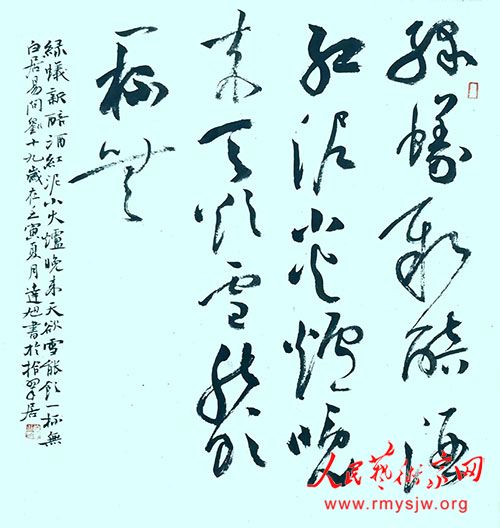 綠蟻新醅酒
紅泥小火爐晚
来天欲雪能飲
一杯無
綠蟻新醅酒紅泥小火爐晚来天欲雪能飲一杯無
白居易問劉十九歲在壬寅夏月達旭書於拾翠居
人民藝術家网
www.rmysjw.org